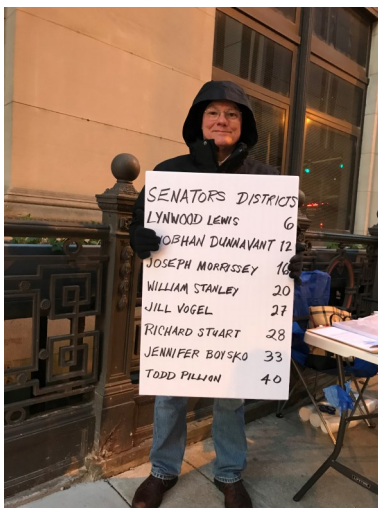 SENATORS DISTRICTS
LYNWOOD LEWIS 6
SIOBHAN DUNNAVANT 12
JOSEPH MORRISSEY 16
WILLIAM STANLEY 20
JILL VOGEL 27
RICHARD STUART 28
JENNIFER BOYSKO 33
TODD PILLION 40